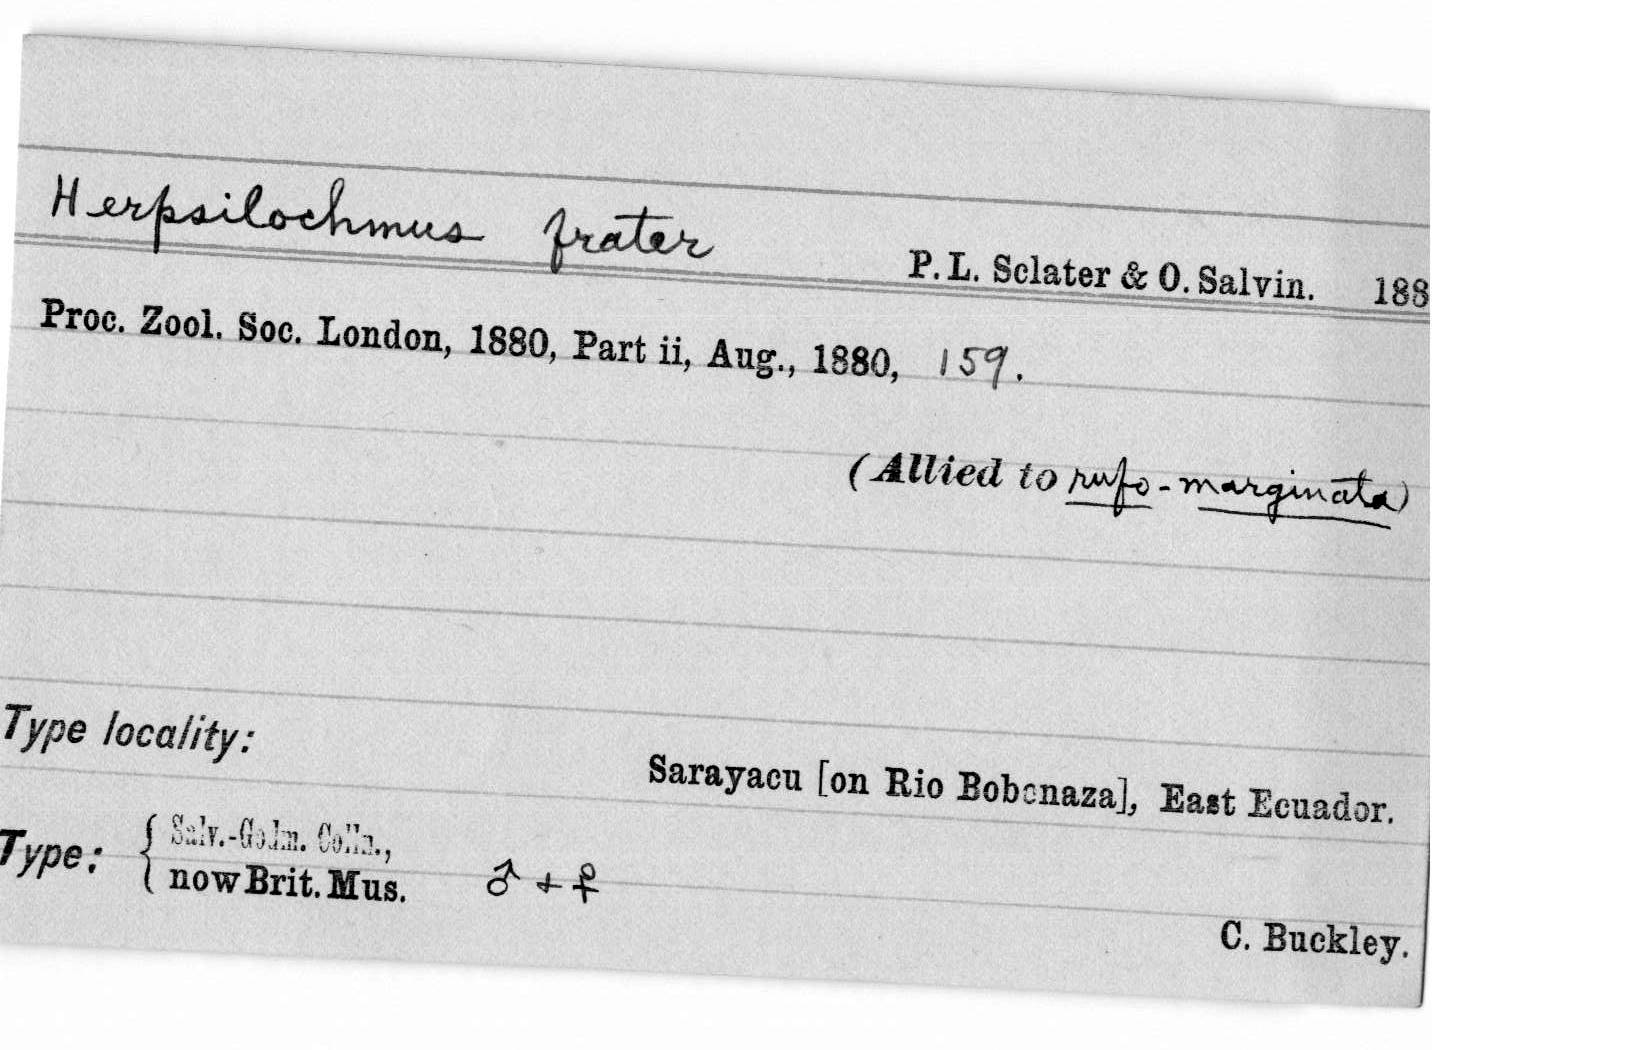 Herpsilochmus frater P. L. Sclater & O. Salvin. 188
Proc. Zool. Soc. London, 1880, Part ii, Aug., 1880, 159.
(Allied to rufo-marginata)
Type locality:
Sarayacu [on Rio Bobonaza], East Ecuador.
Type: { Salv.-Godm. Colln.,
now Brit. Mus. ♂ + ♀
C. Buckley.